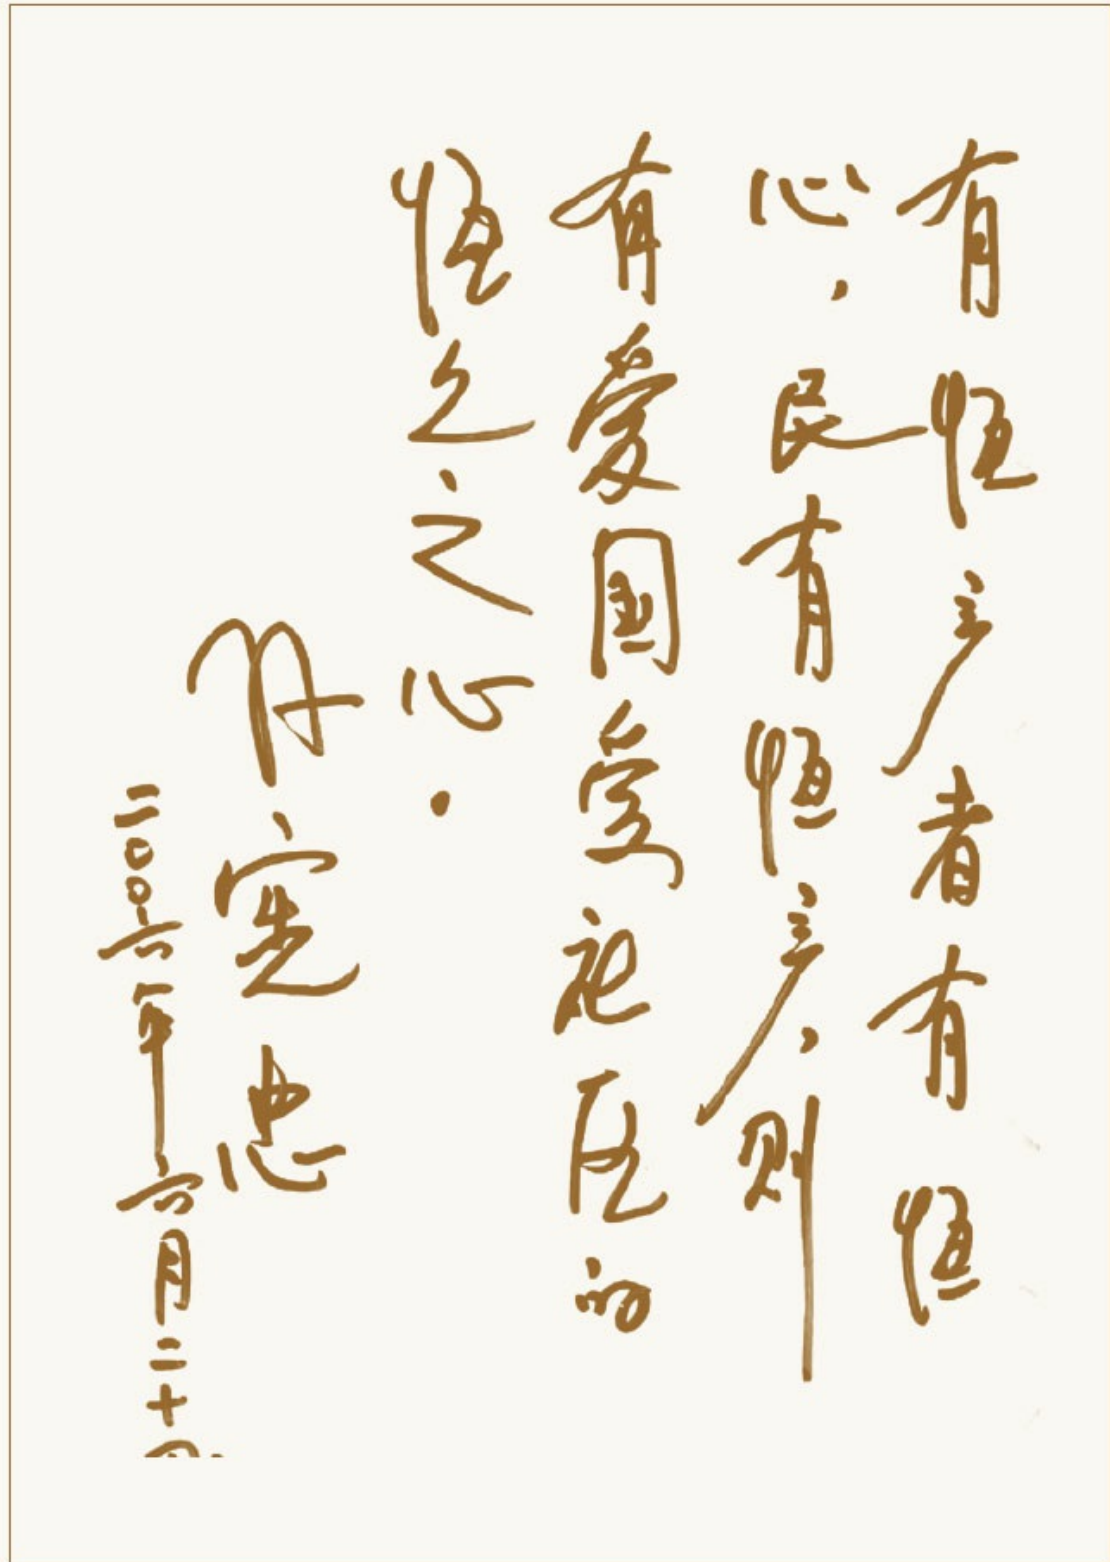 有恒产者有恒
心，民有恒产，则
有爱国爱社区的
恒久之心。
孙宪忠
二〇〇六年六月二十